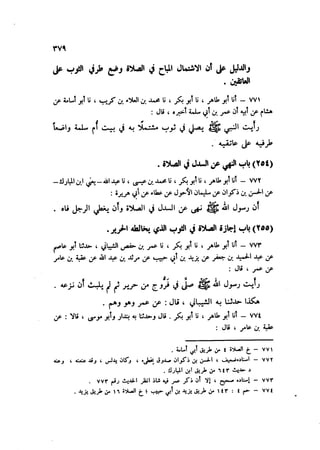 ٣٧٩
والدليل على أن الاشتمال المباح في الصلاة وضع طرفي الثوب على
العاتقين .
٧٧١ – أنا أبو طاهر ، نا أبو بكر ، نا محمد بن العلاء بن كريب ، نا أبو أسامة عن
هشام عن أبيه عن عمر بن أبي سلمة أخبره ، قال :
رأيت النبي ﷺ يصلي في ثوب مشتملاً به في بيت أم سلمة واضعاً
طرفيه على عاتقيه .
(٢٥٤) باب النهي عن السدل في الصلاة .
٧٧٢ – أنا أبو طاهر ، نا أبو بكر ، نا محمد بن عيسى ، نا عبد الله – يعني ابن المبارك –
عن الحسن بن ذكوان عن سليمان الأحول عن عطاء عن أبي هريرة :
أن رسول الله ﷺ نهى عن السدل في الصلاة وأن يغطي الرجل فاه .
(٢٥٥) باب إجازة الصلاة في الثوب الذي يخالطه الحرير .
٧٧٣ – أنا أبو طاهر ، نا أبو بكر ، نا عمر بن حفص الشيباني ، حدثنا أبو عاصم
عبد الحميد بن جعفر عن يزيد بن أبي حبيب عن مرثد بن عبد الله عن عقبة بن عامر
عن عمر ، قال :
رأيت رسول الله ﷺ صلّى في فرُّوج من حرير ثم لم يلبث أن نزعه .
هكذا حدثنا به الشيباني ، قال : عن عمر وهو وهم .
٧٧٤ – أنا أبو طاهر ، نا أبو بكر . قال وحدثنا بندار وأبو موسى ، قالا : عن
عقبة بن عامر ، قال :
٧٧١ – خ الصلاة ٤ من طريق أبي أسامة .
٧٧٢ – إسناده ضعيف ، الحسن بن ذكوان صدوق يخطىء ، وكان يدلس ، وقد عنعنه ،
د حديث ٦٤٣ من طريق ابن المبارك .
٧٧٣ – إسناده صحيح ، إلا أن ذكر عمر فيه شاذ انظر الحديث رقم ٧٧٣ .
٧٧٤ – حم ٤ : ١٤٣ من طريق يزيد بن أبي حبيب ؛ خ الصلاة ١٦ من طريق يزيد .